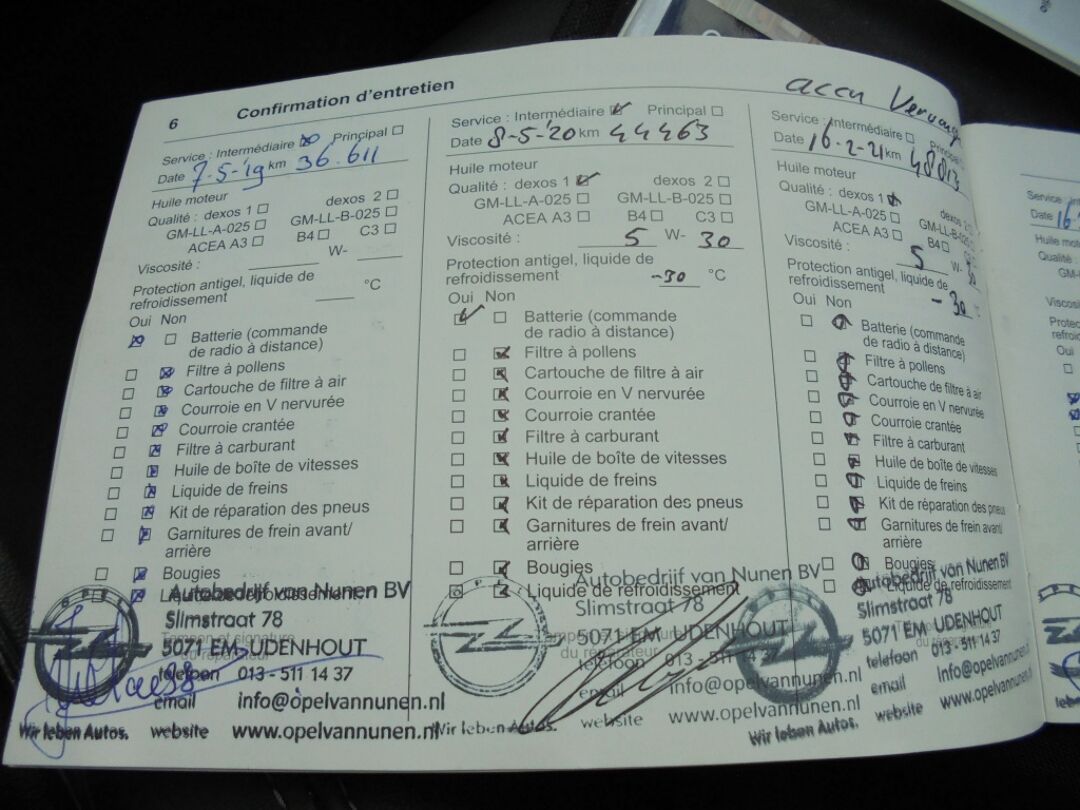 6 Confirmation d'entretien
Service : Intermédiaire Principal
Date 7-5-'19 km 36.611
Huile moteur
Qualité : dexos 1 dexos 2
GM-LL-A-025 GM-LL-B-025
ACEA A3 B4 C3
Viscosité : W-
Protection antigel, liquide de
refroidissement °C
Oui Non
Batterie (commande
de radio à distance)
Filtre à pollens
Cartouche de filtre à air
Courroie en V nervurée
Courroie crantée
Filtre à carburant
Huile de boîte de vitesses
Liquide de freins
Kit de réparation des pneus
Garnitures de frein avant/
arrière
Bougies
Autobedrijf van Nunen BV
Slimstraat 78
Tampon et signature
5071 EM UDENHOUT
du réparateur
telefoon 013 - 511 14 37
email info@opelvannunen.nl
Wir leben Autos. website www.opelvannunen.nl
Service : Intermédiaire Principal
Date 8-5-'20 km 44463
Huile moteur
Qualité : dexos 1 dexos 2
GM-LL-A-025 GM-LL-B-025
ACEA A3 B4 C3
Viscosité : 5 W- 30
Protection antigel, liquide de
refroidissement -30 °C
Oui Non
Batterie (commande
de radio à distance)
Filtre à pollens
Cartouche de filtre à air
Courroie en V nervurée
Courroie crantée
Filtre à carburant
Huile de boîte de vitesses
Liquide de freins
Kit de réparation des pneus
Garnitures de frein avant/
arrière
Bougies
Autobedrijf van Nunen BV
Liquide de refroidissement
Slimstraat 78
Tampon et signature
5071 EM UDENHOUT
du réparateur
telefoon 013 - 511 14 37
email info@opelvannunen.nl
Wir leben Autos. website www.opelvannunen.nl
accu
Service : Intermédiaire
Date 16-2-21 km 48813
Huile moteur
Qualité : dexos 1 dexos
GM-LL-A-025 GM-LL-B-025
ACEA A3 B4
Viscosité : 5 W-
Protection antigel, liquide de
refroidissement -30
Oui Non
Batterie (commande
de radio à distance)
Filtre à pollens
Cartouche de filtre à air
Courroie en V nervurée
Courroie crantée
Filtre à carburant
Huile de boîte de vitesses
Liquide de freins
Kit de réparation des pneus
Garnitures de frein avant/
arrière
Bougies
Autobedrijf van Nunen BV
Liquide de refroidissement
Slimstraat 78
5071 EM UDENHOUT
telefoon 013 - 511 14 37
email info@opelvannunen.nl
Wir leben Autos. website www.opelvannunen.nl
Service :
Date 16
Qualité :
Oui